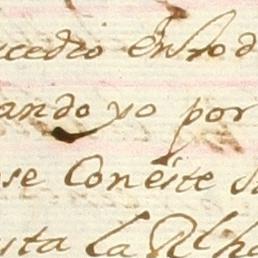 ucedio en rod
ando yo por
se Con este su
sta la Alha